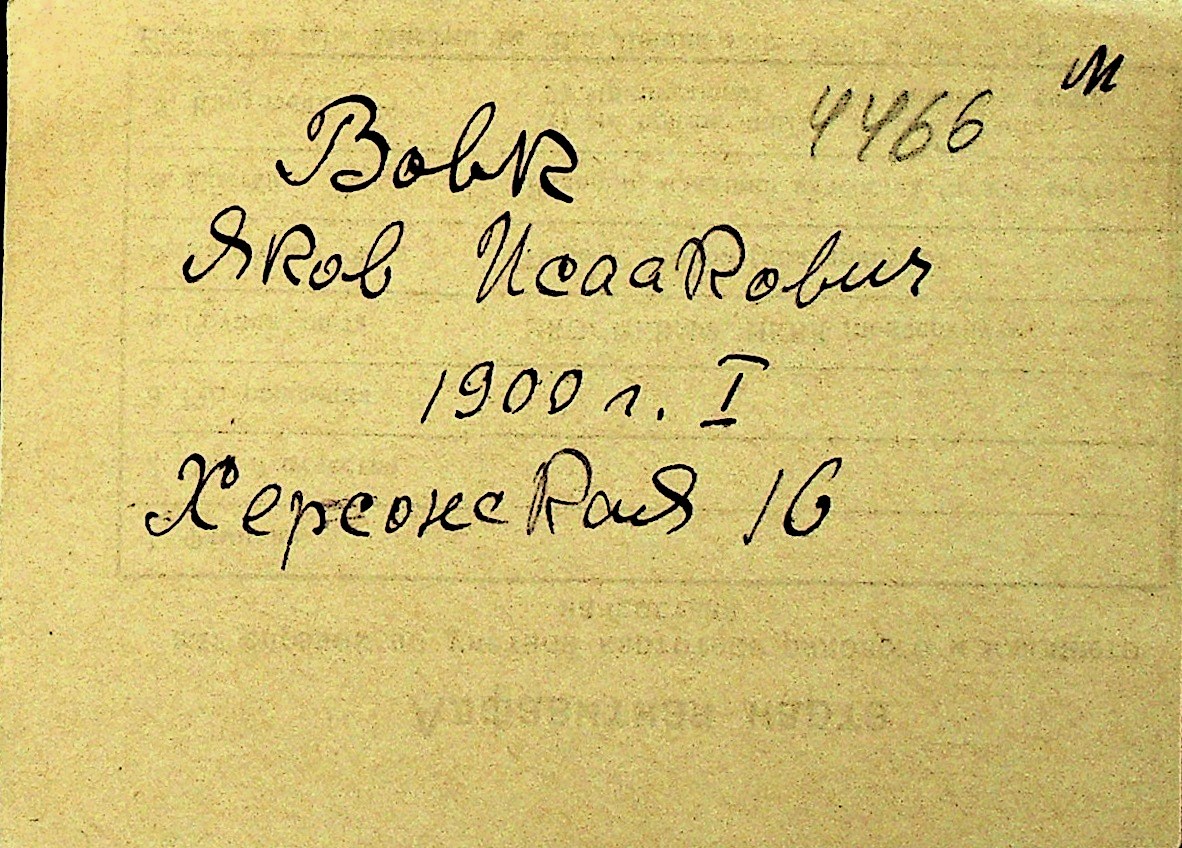 м
4466
Вовк
Яков Исаакович
1900 г. I
Херсонская 16